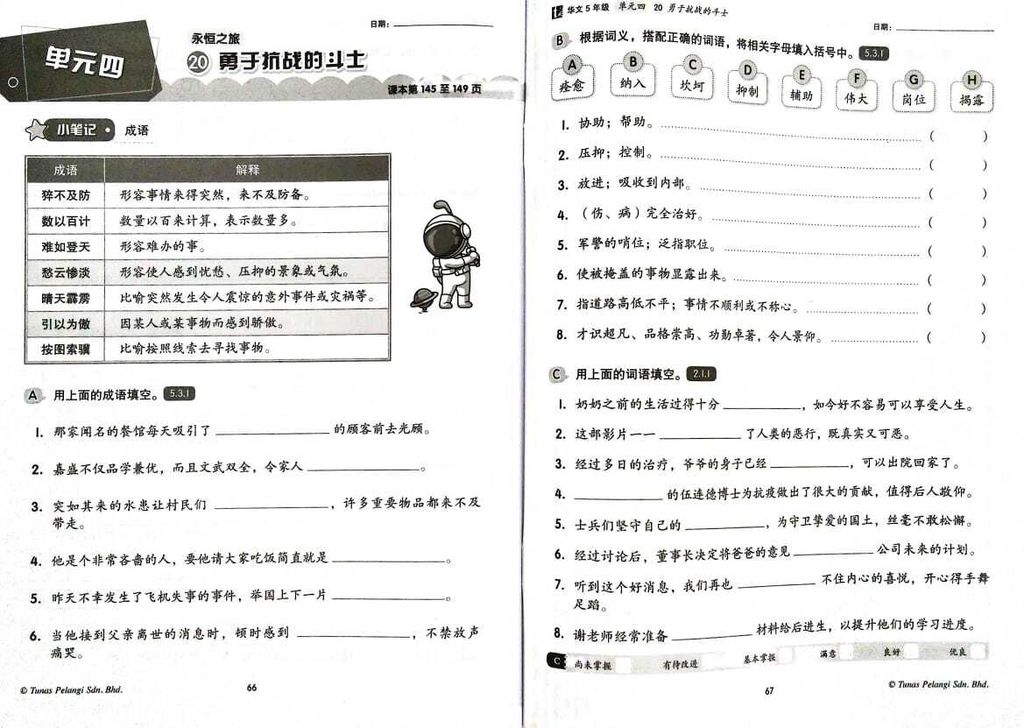 日期：
单元四
永恒之旅
20 勇于抗战的斗士
课本第 145 至 149 页
小笔记 成语
成语 解释
猝不及防 形容事情来得突然，来不及防备。
数以百计 数量以百来计算，表示数量多。
难如登天 形容难办的事。
愁云惨淡 形容使人感到忧愁、压抑的景象或气氛。
晴天霹雳 比喻突然发生令人震惊的意外事件或灾祸等。
引以为傲 因某人或某事物而感到骄傲。
按图索骥 比喻按照线索去寻找事物。
A 用上面的成语填空。 5.3.1
1. 那家闻名的餐馆每天吸引了 ____________ 的顾客前去光顾。
2. 嘉盛不仅品学兼优，而且文武双全，令家人 ____________。
3. 突如其来的水患让村民们 ____________，许多重要物品都来不及
带走。
4. 他是个非常吝啬的人，要他请大家吃饭简直就是 ____________。
5. 昨天不幸发生了飞机失事的事件，举国上下一片 ____________。
6. 当他接到父亲离世的消息时，顿时感到 ____________，不禁放声
痛哭。
© Tunas Pelangi Sdn. Bhd.
66
华文 5 年级 单元四 20 勇于抗战的斗士
日期：
B 根据词义，搭配正确的词语，将相关字母填入括号中。 5.3.1
A B C D E F G H
痊愈 纳入 坎坷 抑制 辅助 伟大 岗位 揭露
1. 协助；帮助。 ( )
2. 压抑；控制。 ( )
3. 放进；吸收到内部。 ( )
4. （伤、病）完全治好。 ( )
5. 军警的哨位；泛指职位。 ( )
6. 使被掩盖的事物显露出来。 ( )
7. 指道路高低不平；事情不顺利或不称心。 ( )
8. 才识超凡、品格崇高、功勋卓著，令人景仰。 ( )
C 用上面的词语填空。 2.1.1
1. 奶奶之前的生活过得十分 ____________，如今好不容易可以享受人生。
2. 这部影片一一 ____________ 了人类的恶行，既真实又可恶。
3. 经过多日的治疗，爷爷的身子已经 ____________，可以出院回家了。
4. ____________ 的伍连德博士为抗疫做出了很大的贡献，值得后人敬仰。
5. 士兵们坚守自己的 ____________，为守卫挚爱的国土，丝毫不敢松懈。
6. 经过讨论后，董事长决定将爸爸的意见 ____________ 公司未来的计划。
7. 听到这个好消息，我们再也 ____________ 不住内心的喜悦，开心得手舞
足蹈。
8. 谢老师经常准备 ____________ 材料给后进生，以提升他们的学习进度。
C 尚未掌握 有待改进 基本掌握 满意 良好 优良
67
© Tunas Pelangi Sdn. Bhd.